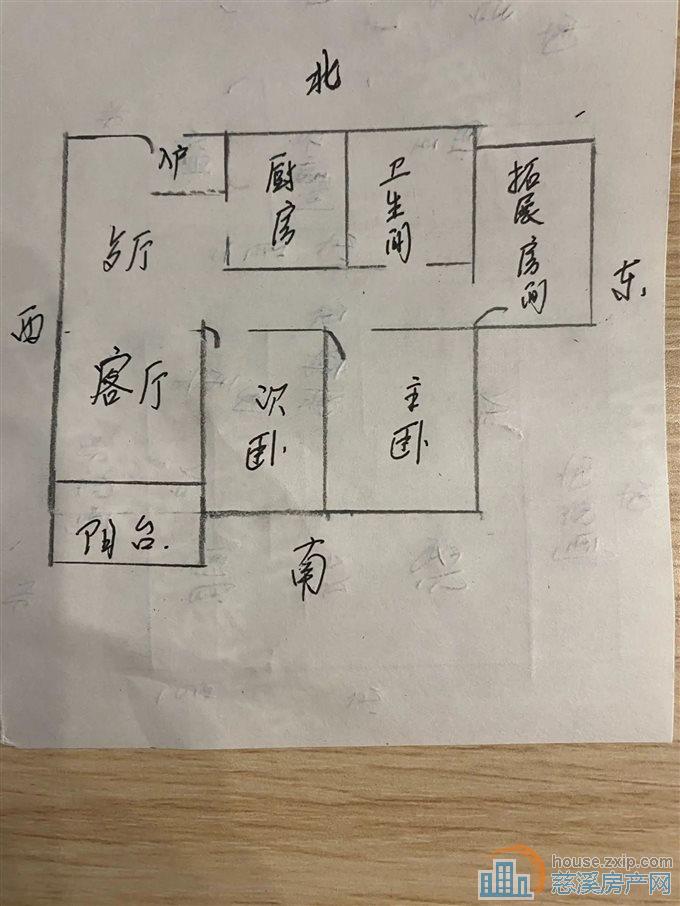 北
入户
厨房
卫生间
拓展房间
餐厅
东
西
客厅
次卧
主卧
阳台
南
house.zxip.com
慈溪房产网